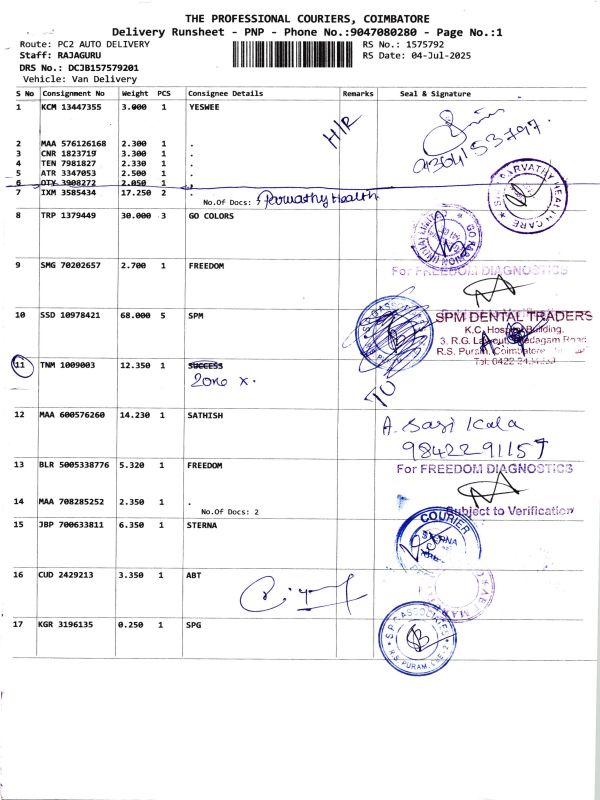 THE PROFESSIONAL COURIERS, COIMBATORE
Delivery Runsheet - PNP - Phone No.:9047080280 - Page No.:1
Route: PC2 AUTO DELIVERY RS No.: 1575792
Staff: RAJAGURU RS Date: 04-Jul-2025
DRS No.: DCJB157579201
Vehicle: Van Delivery
S No Consignment No Weight PCS Consignee Details Remarks Seal & Signature
1 KCM 13447355 3.000 1 YESWEE
H/R
2 MAA 576126168 2.300 1 .
3 CNR 1823719 3.300 1 .
4 TEN 7981827 2.330 1 .
5 ATR 3347053 2.500 1 .
6 OTY 3908272 2.050 1 .
7 IXM 3585434 17.250 2 .
No.Of Docs: 7 Parwathy Health
PARVATHY HEALTH CARE
8 TRP 1379449 30.000 3 GO COLORS
9 SMG 70202657 2.700 1 FREEDOM
For FREEDOM DIAGNOSTICS
10 SSD 10978421 68.000 5 SPM
SPM DENTAL TRADERS
K.C. Hospital Building,
3, R.G. Layout,
R.S. Puram, Coimbatore
Tel: 0422
11 TNM 1009003 12.350 1 SUCCESS
Zone x.
TO
12 MAA 600576260 14.230 1 SATHISH
A. Sasi Kala
9842291157
13 BLR 5005338776 5.320 1 FREEDOM
For FREEDOM DIAGNOSTICS
14 MAA 708285252 2.350 1 .
No.Of Docs: 2
Subject to Verification
15 JBP 700633811 6.350 1 STERNA
COURIER
STERNA
16 CUD 2429213 3.350 1 ABT
17 KGR 3196135 0.250 1 SPG
S.P.G ASSOCIATES
R.S. PURAM, CBE-2